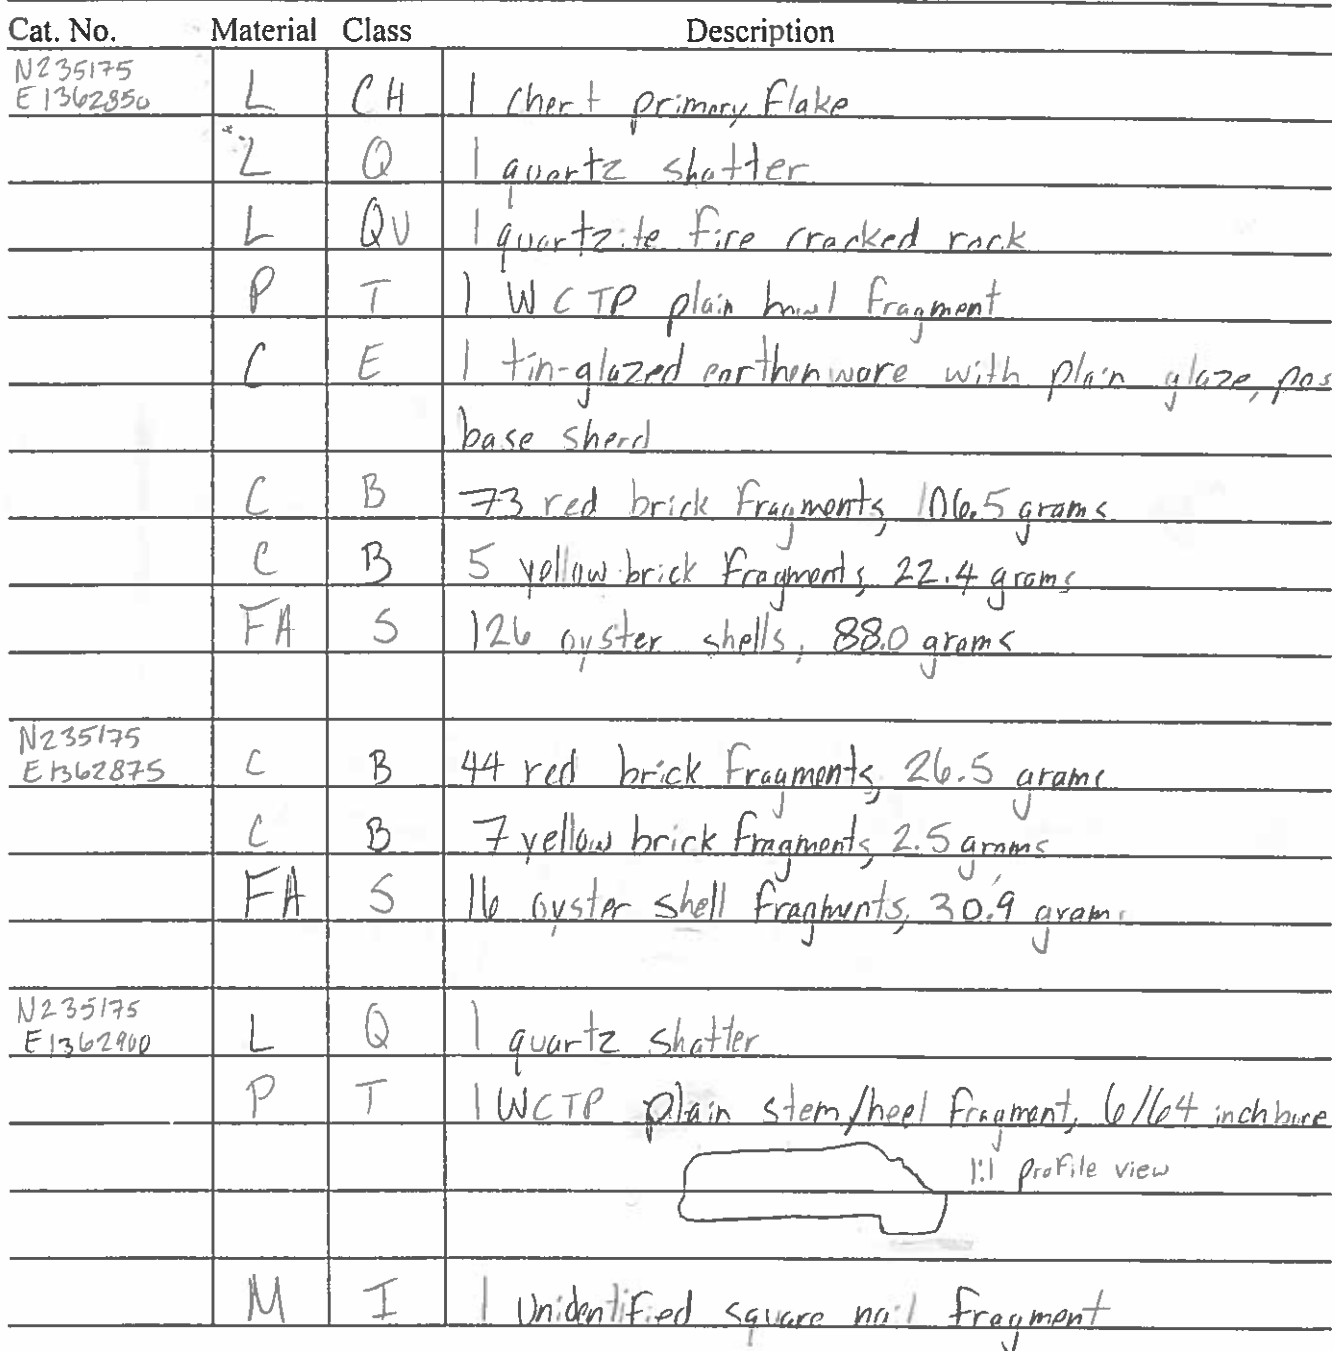 Cat. No. Material Class Description
N235175
E1362850 L CH 1 chert primary flake
L Q 1 quartz shatter
L QU 1 quartzite fire cracked rock
P T 1 WCTP plain bowl fragment
C E 1 tin-glazed earthenware with plain glaze, pos
base sherd
C B 73 red brick fragments, 106.5 grams
C B 5 yellow brick fragments, 22.4 grams
FA S 126 oyster shells, 88.0 grams
N235175
E1362875 C B 44 red brick fragments, 26.5 grams
C B 7 yellow brick fragments, 2.5 grams
FA S 16 oyster shell fragments, 30.9 grams
N235175
E1362900 L Q 1 quartz shatter
P T 1 WCTP plain stem/heel fragment, 6/64 inch bore
1:1 profile view
M I 1 Unidentified square nail fragment